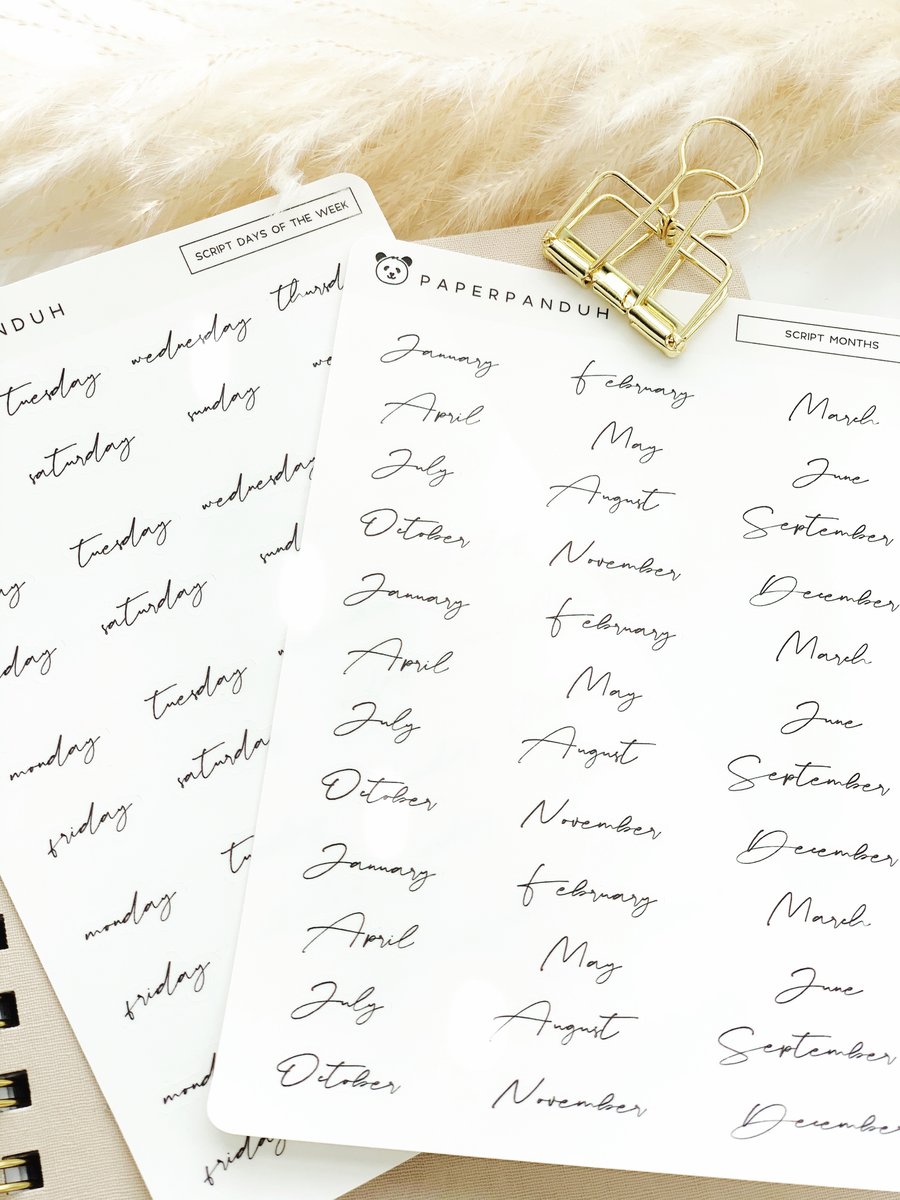 SCRIPT DAYS OF THE WEEK
NDUH
tuesday wednesday thursd
saturday sunday we
ay tuesday wednesday
day saturday sund
monday tuesday
friday saturda
monday tu
friday
mond
friday
PAPERPANDUH
SCRIPT MONTHS
January February March
April May June
July August September
October November December
January February March
April May June
July August September
October November December
January February March
April May June
July August September
October November December